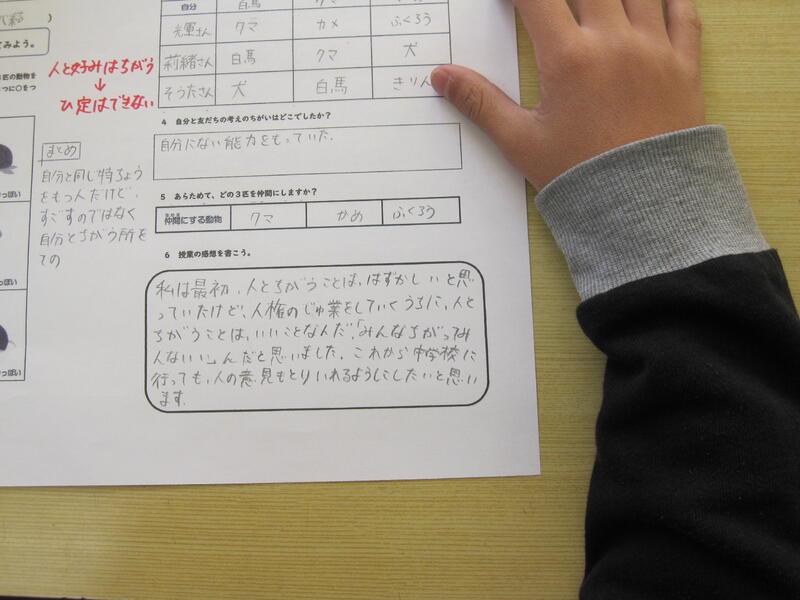 てみよう。
匹の動物を
つに○をつ
人と好みはちがう
↓
ひ定はできない
自分 白馬 クマ
光輝さん クマ カメ ふくろう
莉緒さん 白馬 クマ 犬
そうたさん 犬 白馬 きりん
4 自分と友だちの考えのちがいはどこでしたか？
自分にない能力をもっていた。
まとめ
自分と同じ特ちょう
をもつ人だけど、
すごすのではなく
自分とちがう所を
ての
っぽい
っぽい
っぽい
5 あらためて、どの３匹を仲間にしますか？
仲間にする動物 クマ かめ ふくろう
6 授業の感想を書こう。
私は最初、人とちがうことは、はずかしいと思
っていたけど、人権のじゅ業をしていくうちに、人と
ちがうことは、いいことなんだ、「みんなちがってみ
んないい」んだと思いました。これから中学校に
行っても、人の意見もとりいれるようにしたいと思い
ます。